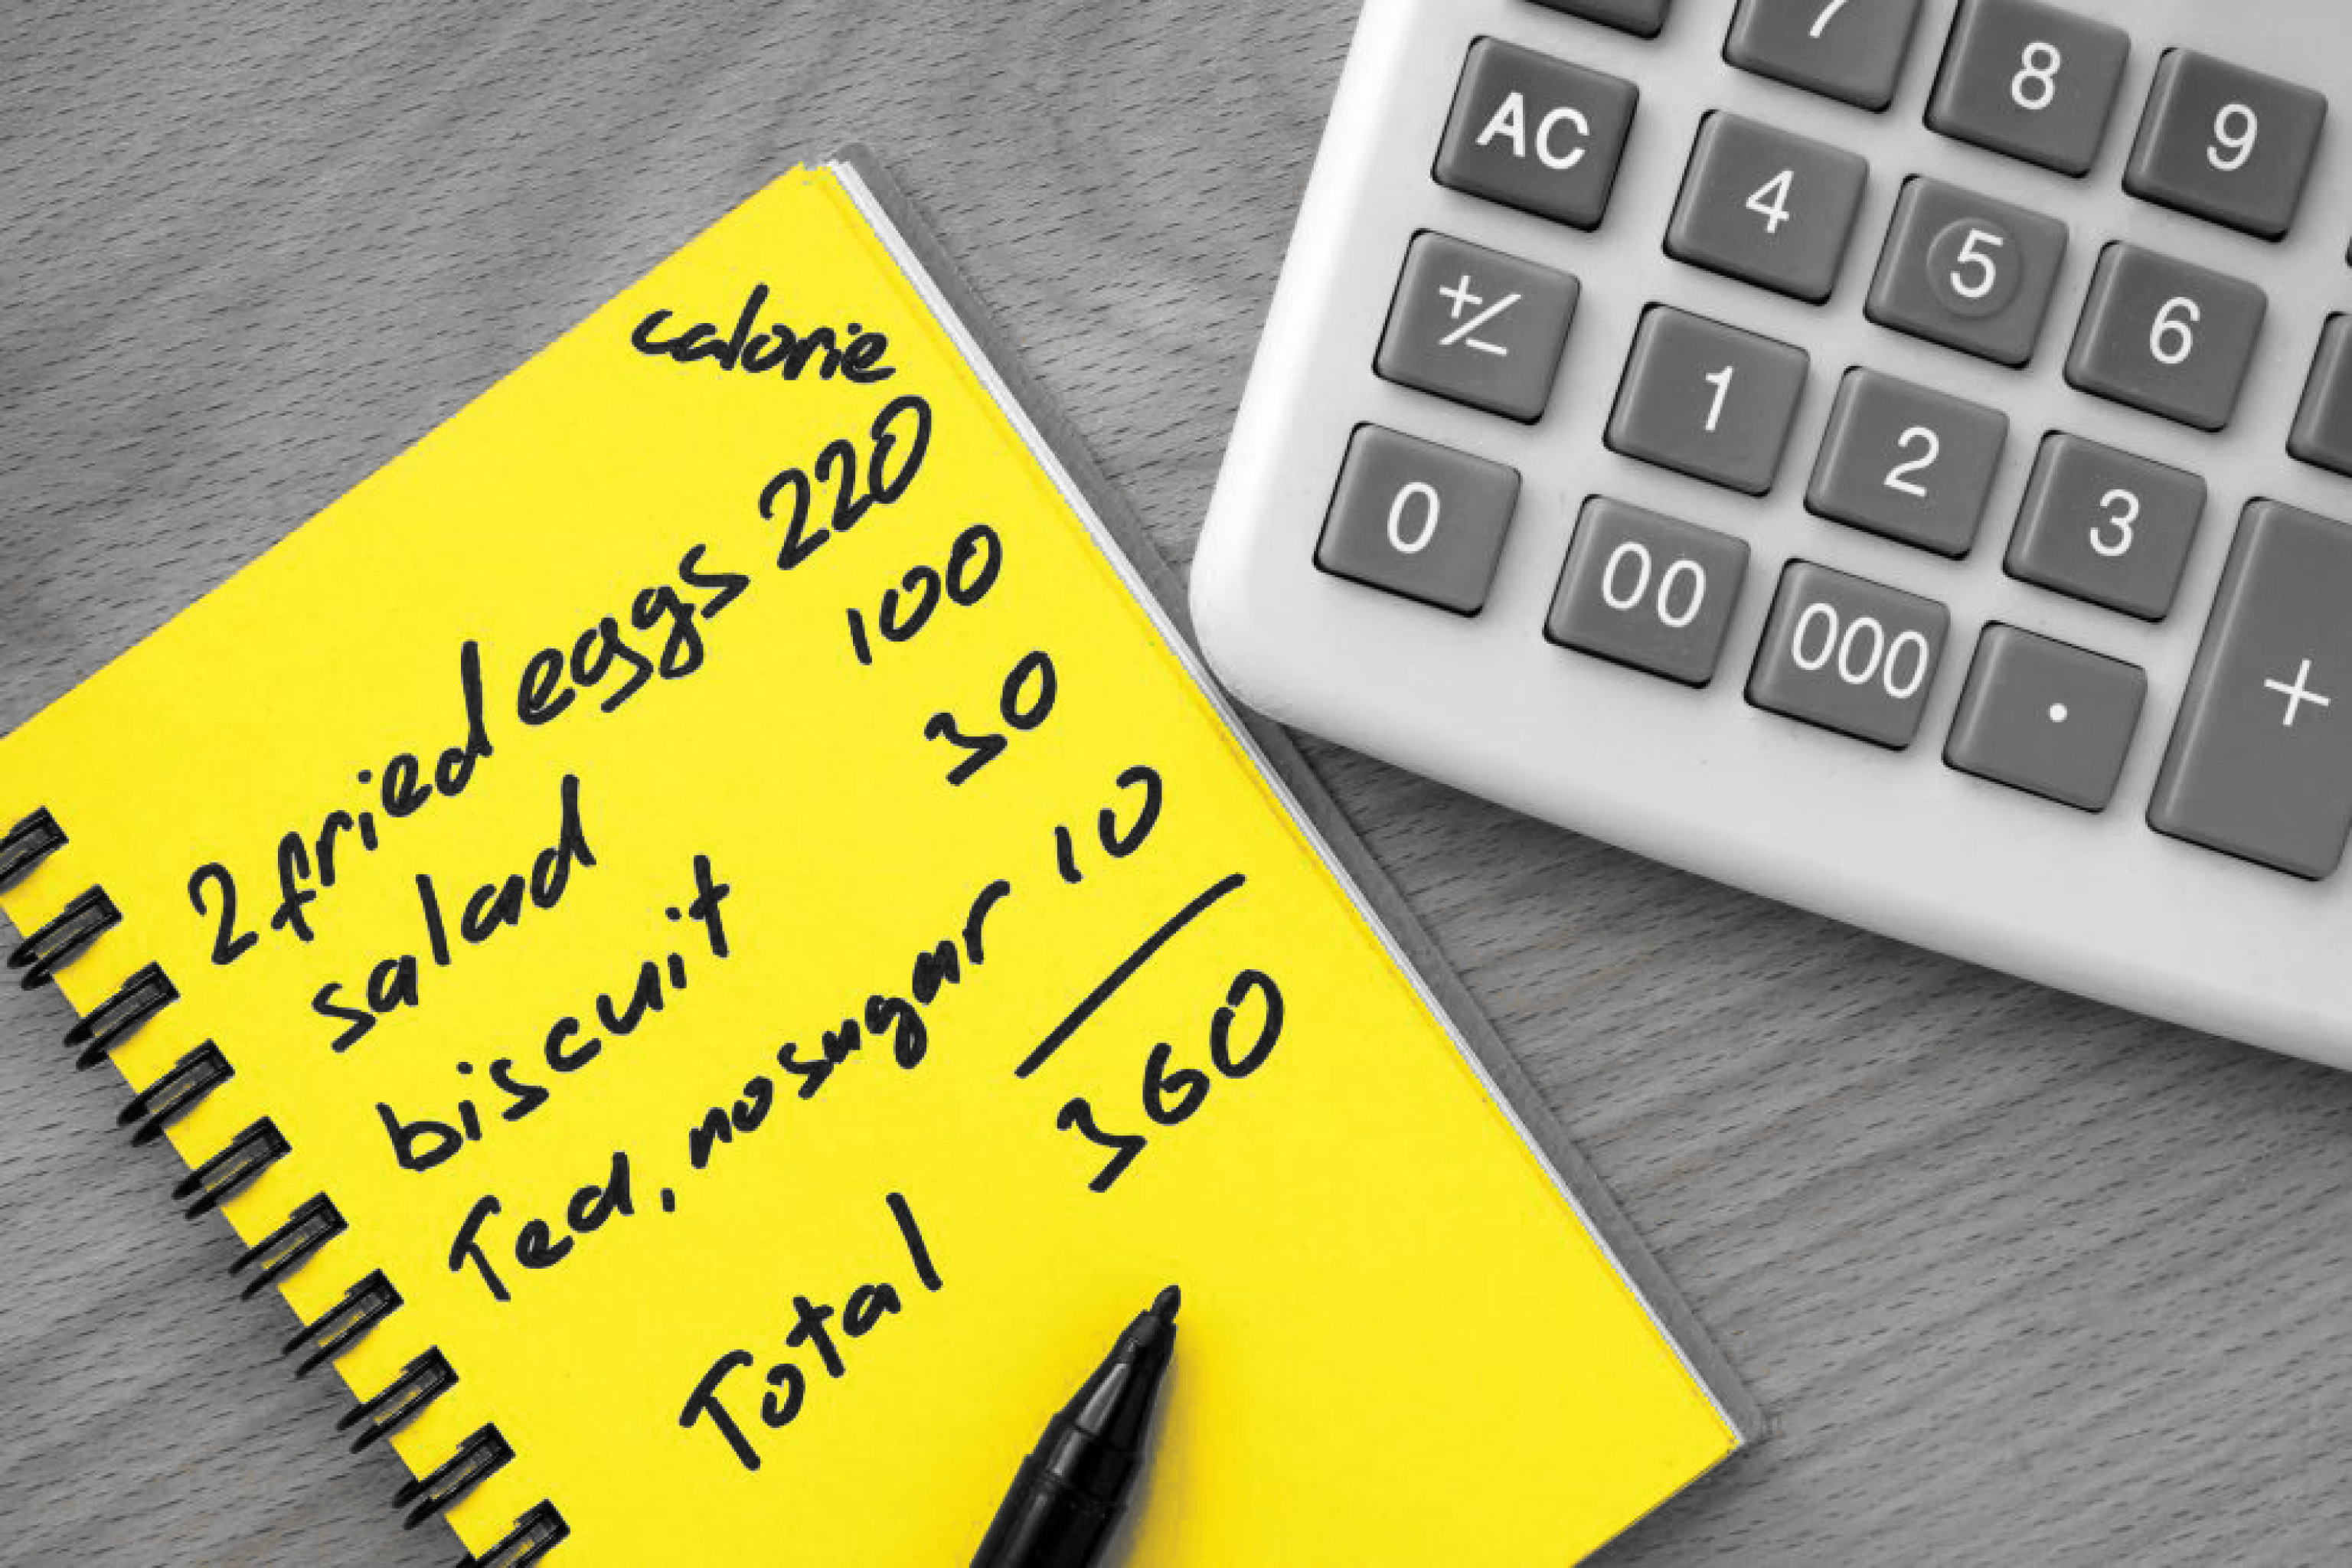 calorie
2 fried eggs 220
salad 100
biscuit 30
Tea, no sugar 10
360
Total
7 8 9
AC 4 5 6
+/− 1 2 3
0 00 000 . +